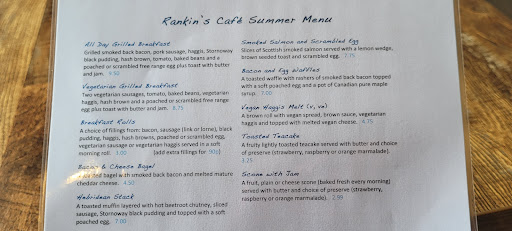 Rankin's Café Summer Menu
All Day Grilled Breakfast
Grilled smoked back bacon, pork sausage, haggis, Stornoway
black pudding, hash brown, tomato, baked beans and a
poached or scrambled free range egg plus toast with butter
and jam. 9.50
Vegetarian Grilled Breakfast
Two vegetarian sausages, tomato, baked beans, vegetarian
haggis, hash brown and a poached or scrambled free range
egg plus toast with butter and jam. 8.75
Breakfast Rolls
A choice of fillings from: bacon, sausage (link or lorne), black
pudding, haggis, hash browns, poached or scrambled egg,
vegetarian sausage or vegetarian haggis served in a soft
morning roll. 3.00 (add extra fillings for 90p)
Bacon & Cheese Bagel
bagel with smoked back bacon and melted mature
cheddar cheese. 4.50
Hebridean Stack
A toasted muffin layered with hot beetroot chutney, sliced
sausage, Stornoway black pudding and topped with a soft
poached egg. 7.00
Smoked Salmon and Scrambled Egg
Slices of Scottish smoked salmon served with a lemon wedge,
brown seeded toast and scrambled egg. 7.75
Bacon and Egg Waffles
A toasted waffle with rashers of smoked back bacon topped
with a soft poached egg and a pot of Canadian pure maple
syrup. 7.00
Vegan Haggis Melt (v, ve)
A brown roll with vegan spread, brown sauce, vegetarian
haggis and topped with melted vegan cheese. 4.75
Toasted Teacake
A fruity lightly toasted teacake served with butter and choice
of preserve (strawberry, raspberry or orange marmalade).
3.25
Scone with Jam
A fruit, plain or cheese scone (baked fresh every morning)
served with butter and choice of preserve (strawberry,
raspberry or orange marmalade). 2.99